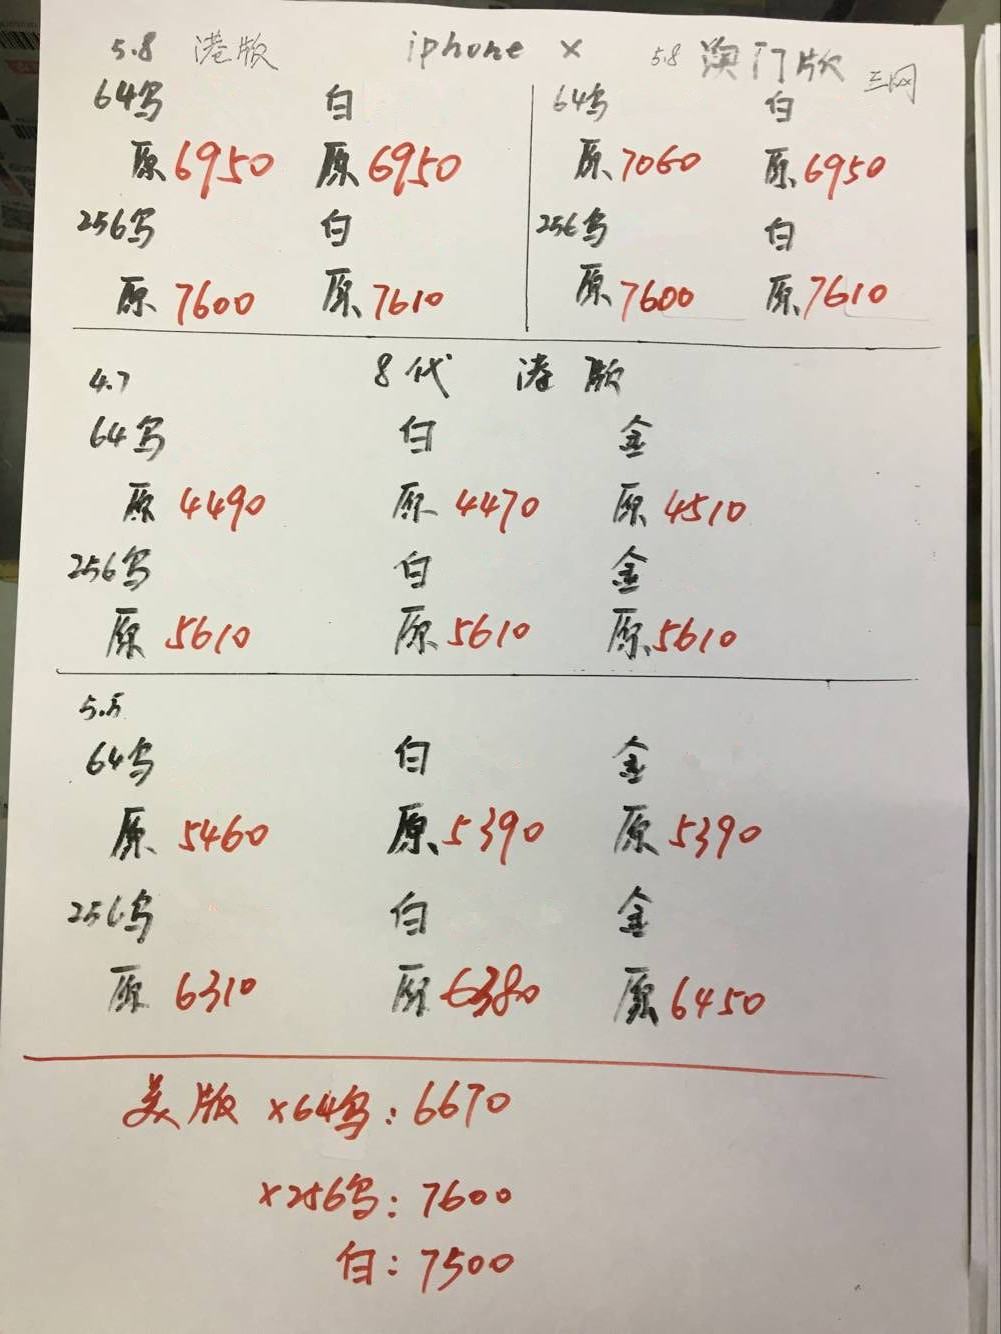 5.8 港版 iphone X 5.8 澳门版 三网
64乌 白 64乌 白
原 6950 原 6950 原 7060 原 6950
256乌 白 256乌 白
原 7600 原 7610 原 7600 原 7610
4.7 8代 港版
64乌 白 金
原 4490 原 4470 原 4510
256乌 白 金
原 5610 原 5610 原 5610
5.5
64乌 白 金
原 5460 原 5390 原 5390
256乌 白 金
原 6310 原 6380 原 6450
美版 X64乌:6670
X256乌:7600
白:7500